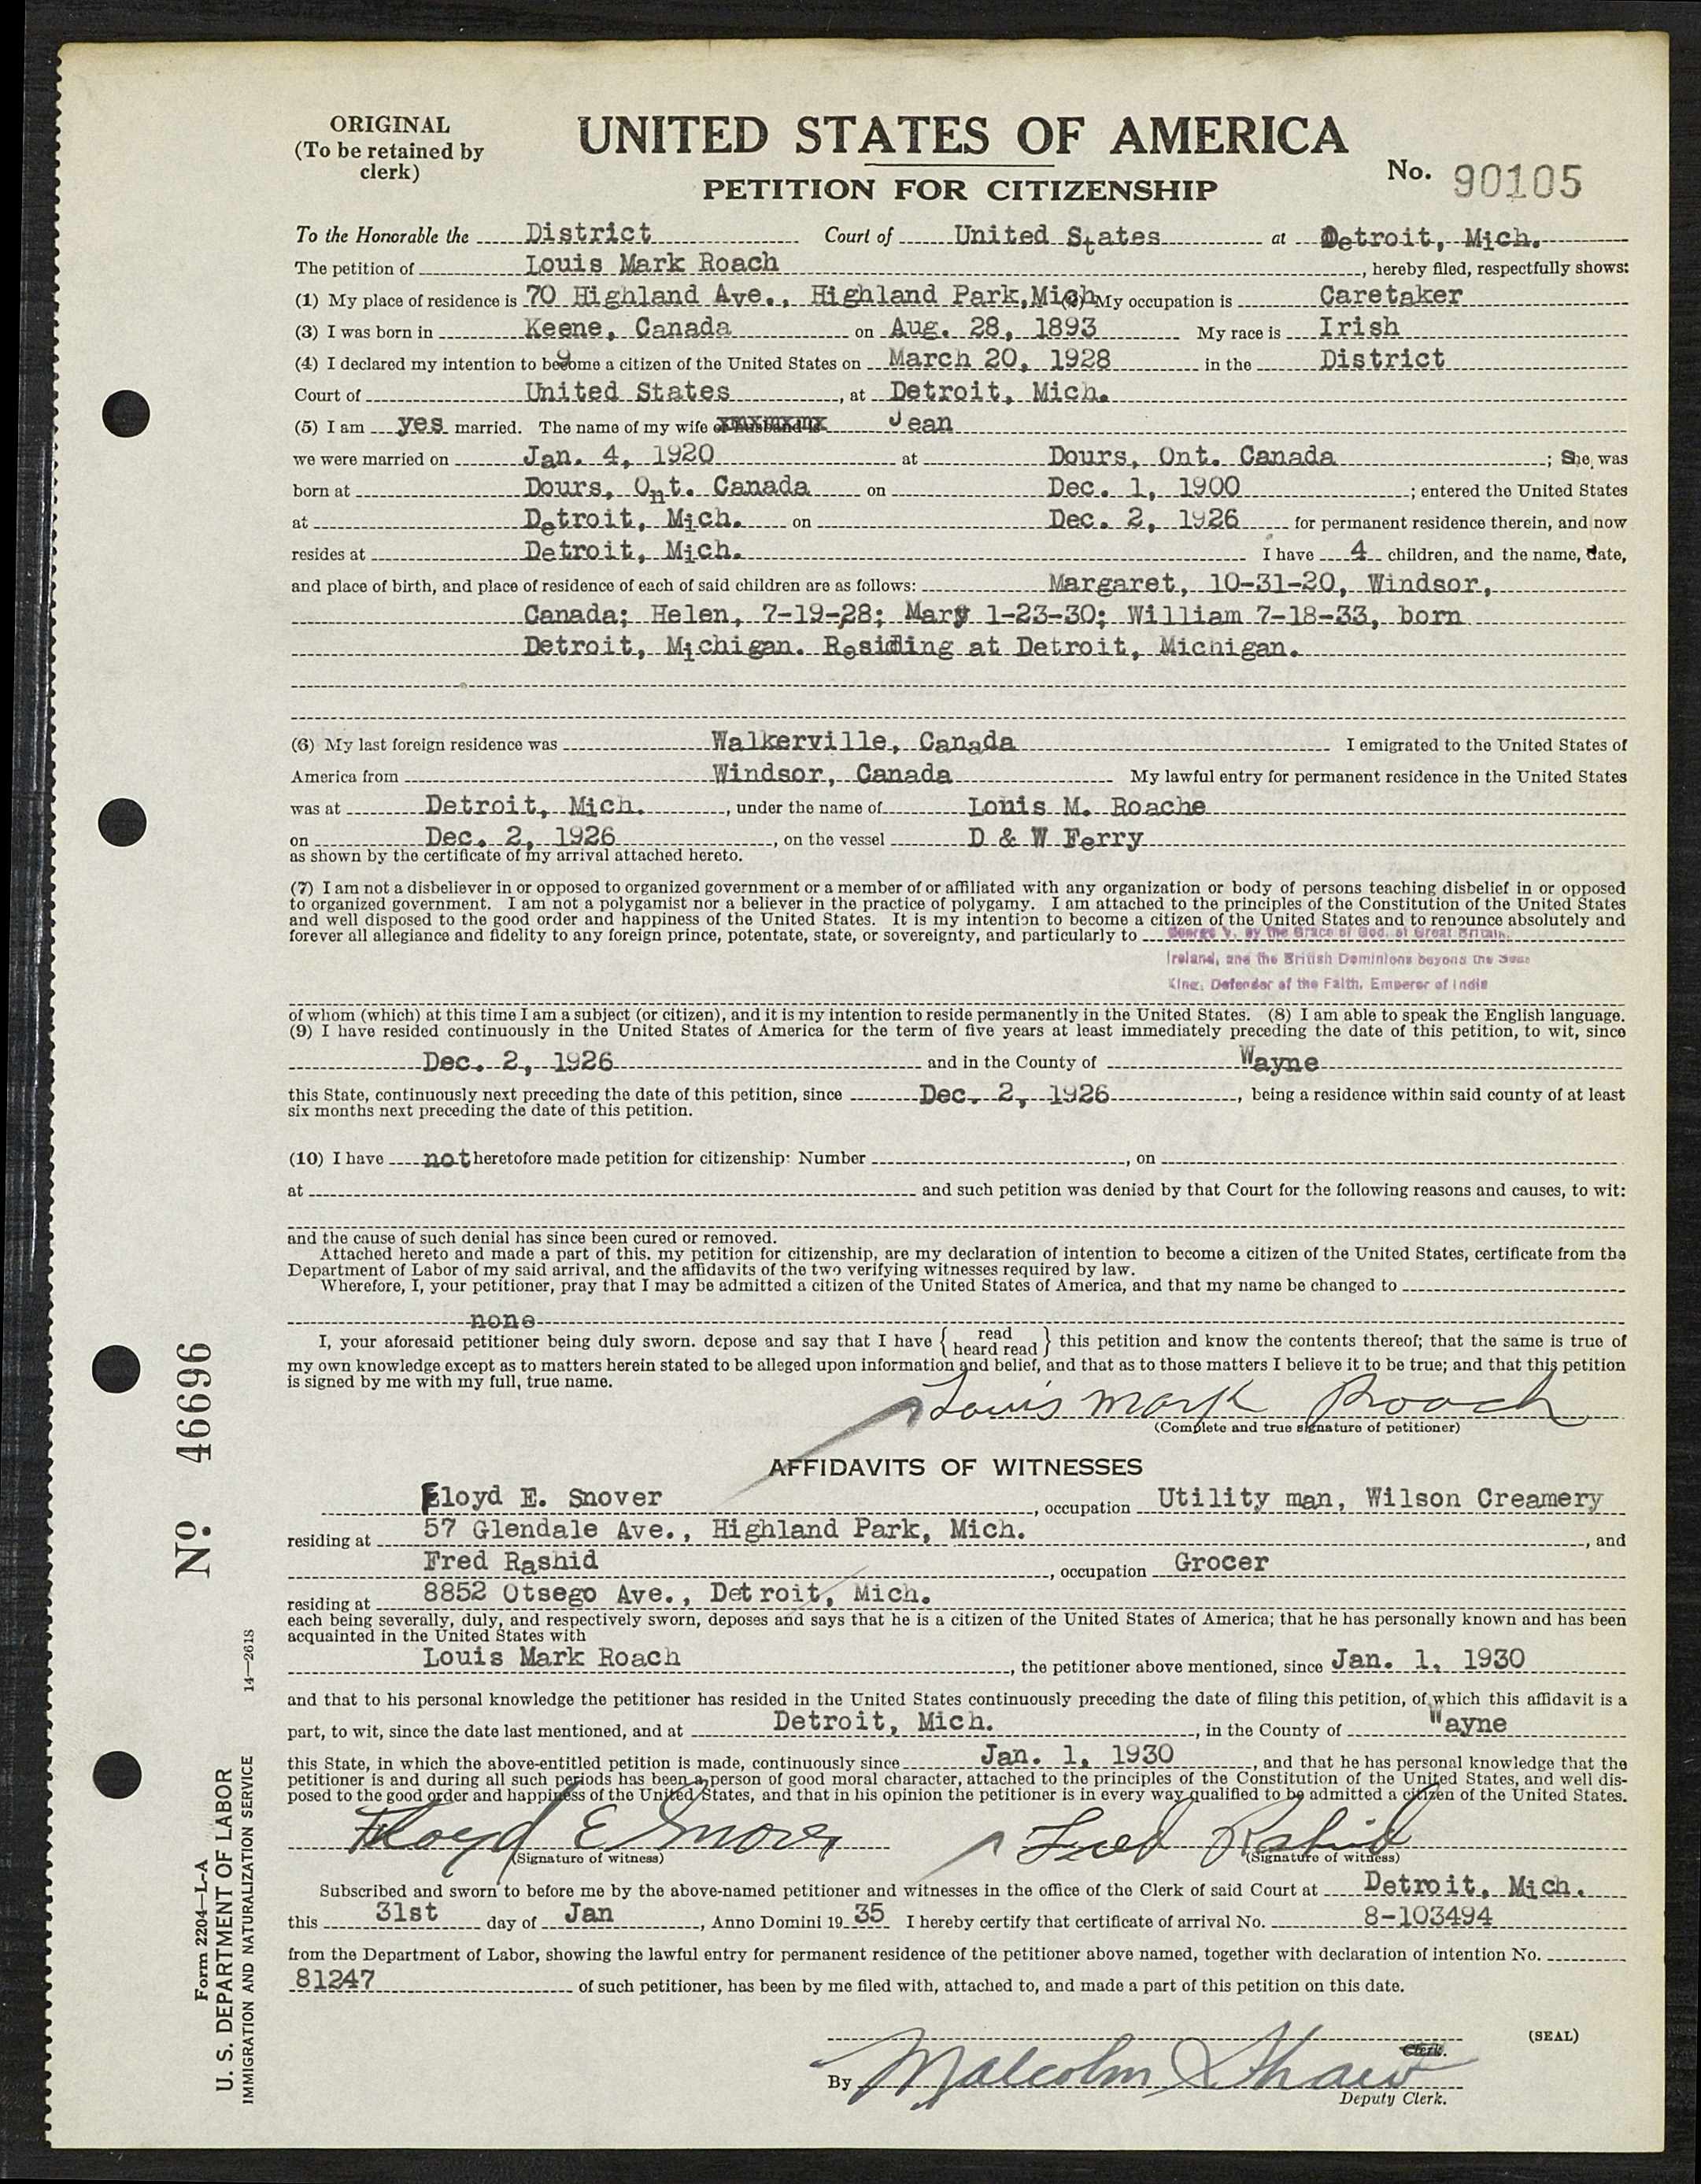 ORIGINAL
(To be retained by
clerk)
UNITED STATES OF AMERICA
PETITION FOR CITIZENSHIP
No. 90105
To the Honorable the District Court of United States at Detroit, Mich.
The petition of Louis Mark Roach, hereby filed, respectfully shows:
(1) My place of residence is 70 Highland Ave., Highland Park, Mich My occupation is Caretaker
(3) I was born in Keene, Canada on Aug. 28, 1893 My race is Irish
(4) I declared my intention to become a citizen of the United States on March 20, 1928 in the District
Court of United States, at Detroit, Mich.
(5) I am yes married. The name of my wife or husband is Jean
we were married on Jan. 4, 1920 at Dours, Ont. Canada; she was
born at Dours, Ont. Canada on Dec. 1, 1900; entered the United States
at Detroit, Mich. on Dec. 2, 1926 for permanent residence therein, and now
resides at Detroit, Mich. I have 4 children, and the name, date,
and place of birth, and place of residence of each of said children are as follows: Margaret, 10-31-20, Windsor,
Canada; Helen, 7-19-28; Mary 1-23-30; William 7-18-33, born
Detroit, Michigan. Residing at Detroit, Michigan.
(6) My last foreign residence was Walkerville, Canada I emigrated to the United States of
America from Windsor, Canada My lawful entry for permanent residence in the United States
was at Detroit, Mich., under the name of Louis M. Roache
on Dec. 2, 1926, on the vessel D & W Ferry
as shown by the certificate of my arrival attached hereto.
(7) I am not a disbeliever in or opposed to organized government or a member of or affiliated with any organization or body of persons teaching disbelief in or opposed
to organized government. I am not a polygamist nor a believer in the practice of polygamy. I am attached to the principles of the Constitution of the United States
and well disposed to the good order and happiness of the United States. It is my intention to become a citizen of the United States and to renounce absolutely and
forever all allegiance and fidelity to any foreign prince, potentate, state, or sovereignty, and particularly to George V, by the Grace of God, of Great Britain,
Ireland, and the British Dominions beyond the Seas
King, Defender of the Faith, Emperor of India
of whom (which) at this time I am a subject (or citizen), and it is my intention to reside permanently in the United States. (8) I am able to speak the English language.
(9) I have resided continuously in the United States of America for the term of five years at least immediately preceding the date of this petition, to wit, since
Dec. 2, 1926 and in the County of Wayne
this State, continuously next preceding the date of this petition, since Dec. 2, 1926, being a residence within said county of at least
six months next preceding the date of this petition.
(10) I have not heretofore made petition for citizenship: Number , on
at and such petition was denied by that Court for the following reasons and causes, to wit:
and the cause of such denial has since been cured or removed.
Attached hereto and made a part of this, my petition for citizenship, are my declaration of intention to become a citizen of the United States, certificate from the
Department of Labor of my said arrival, and the affidavits of the two verifying witnesses required by law.
Wherefore, I, your petitioner, pray that I may be admitted a citizen of the United States of America, and that my name be changed to
none
I, your aforesaid petitioner being duly sworn, depose and say that I have { read heard read } this petition and know the contents thereof; that the same is true of
my own knowledge except as to matters herein stated to be alleged upon information and belief, and that as to those matters I believe it to be true; and that this petition
is signed by me with my full, true name.
Louis Mark Roach
(Complete and true signature of petitioner)
AFFIDAVITS OF WITNESSES
Floyd E. Snover, occupation Utility man, Wilson Creamery
residing at 57 Glendale Ave., Highland Park, Mich., and
Fred Rashid, occupation Grocer
residing at 8852 Otsego Ave., Detroit, Mich.
each being severally, duly, and respectively sworn, deposes and says that he is a citizen of the United States of America; that he has personally known and has been
acquainted in the United States with
Louis Mark Roach, the petitioner above mentioned, since Jan. 1, 1930
and that to his personal knowledge the petitioner has resided in the United States continuously preceding the date of filing this petition, of which this affidavit is a
part, to wit, since the date last mentioned, and at Detroit, Mich., in the County of Wayne
this State, in which the above-entitled petition is made, continuously since Jan. 1, 1930, and that he has personal knowledge that the
petitioner is and during all such periods has been a person of good moral character, attached to the principles of the Constitution of the United States, and well dis-
posed to the good order and happiness of the United States, and that in his opinion the petitioner is in every way qualified to be admitted a citizen of the United States.
Floyd E Snover Fred Rashid
(Signature of witness) (Signature of witness)
Subscribed and sworn to before me by the above-named petitioner and witnesses in the office of the Clerk of said Court at Detroit, Mich.
this 31st day of Jan, Anno Domini 19 35 I hereby certify that certificate of arrival No. 8-103494
from the Department of Labor, showing the lawful entry for permanent residence of the petitioner above named, together with declaration of intention No.
81247 of such petitioner, has been by me filed with, attached to, and made a part of this petition on this date.
(SEAL)
Clerk.
By Malcolm Shaw
Deputy Clerk.
No. 46696
14—2618
Form 2204—L-A
U. S. DEPARTMENT OF LABOR
IMMIGRATION AND NATURALIZATION SERVICE